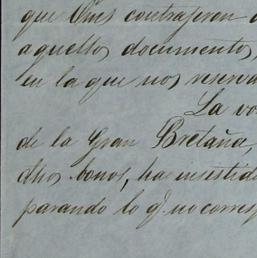 que Ouis contrajeron
aquellos documentos,
en la que nos reserva
La vo
de la Gran Bretaña,
dhos bonos, ha insistido
parando lo q. no corres